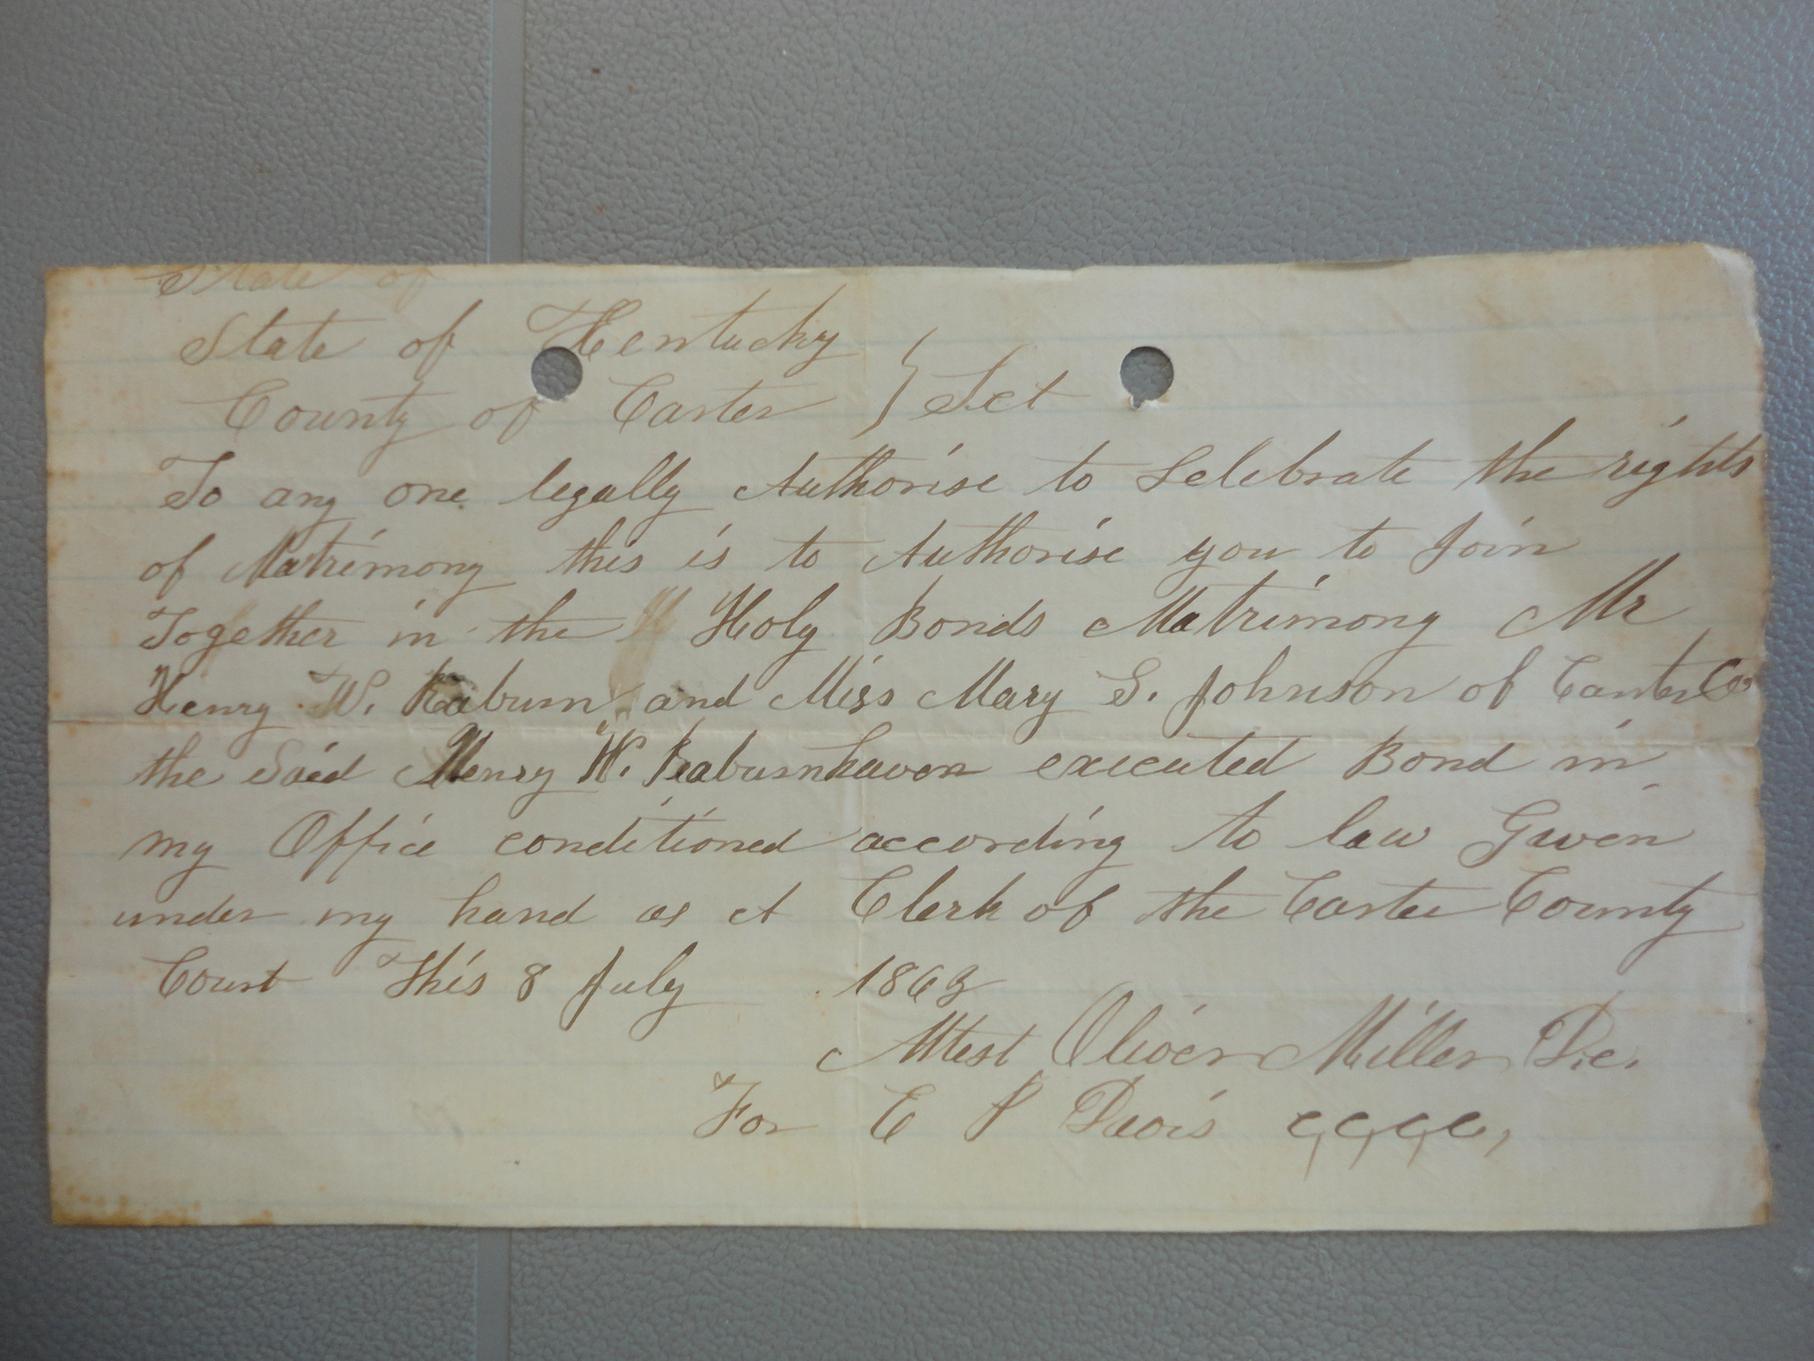 State of
State of Kentucky
County of Carter } Sct
To any one legally Authorise to Selebrate the rights
of Matrimony this is to Authorise you to Join
Together in the Holy Bonds Matrimony Mr
Henry W. Raburn and Miss Mary S. Johnson of Carter Co
the Said Henry W. Raburn haven executed Bond in
my Office conditioned according to law Given
under my hand as Clerk of the Carter County
Court This 8 July 186
Attest Oliver Miller D.C.
For E Davis